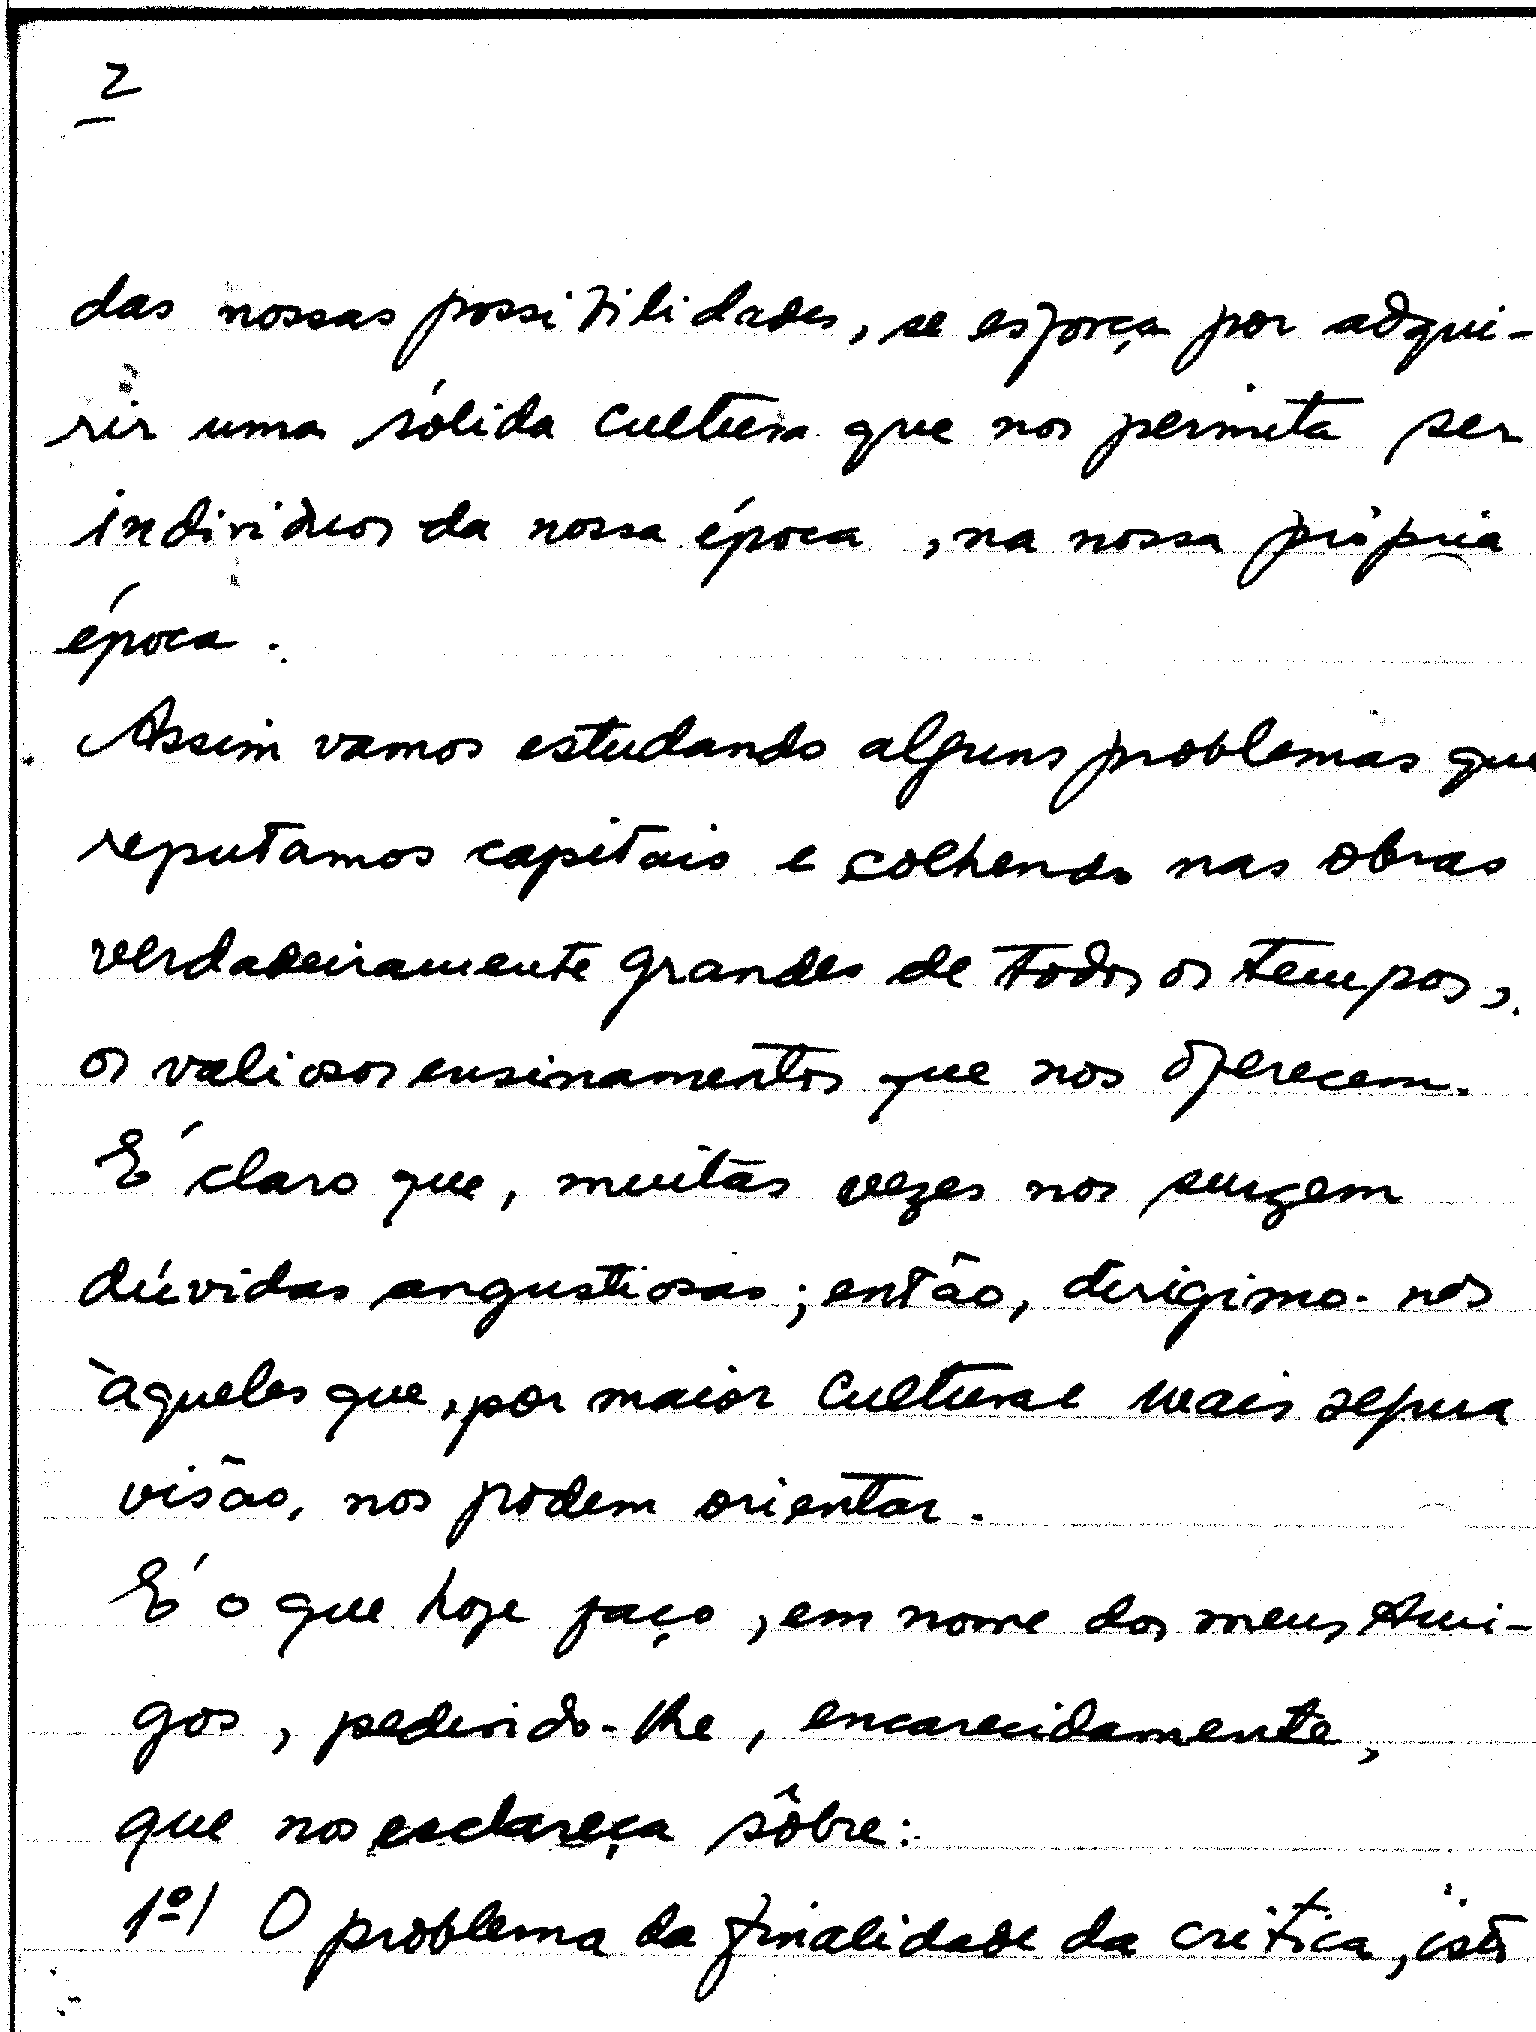 2
das nossas possibilidades, se esforça por adqui-
rir uma sólida cultura que nos permita ser
indivíduos da nossa época, na nossa própria
época.
Assim vamos estudando alguns problemas que
reputamos capitais e colhendo nas obras
verdadeiramente grandes de todos os tempos,
os valiosos ensinamentos que nos oferecem.
É claro que, muitas vezes nos surgem
dúvidas angustiosas; então, dirigimo-nos
àqueles que, por maior cultura e mais segura
visão, nos podem orientar.
É o que hoje faço, em nome dos meus Ami-
gos, pedindo-lhe, encarecidamente,
que nos esclareça sôbre:
1º) O problema da finalidade da crítica, isto